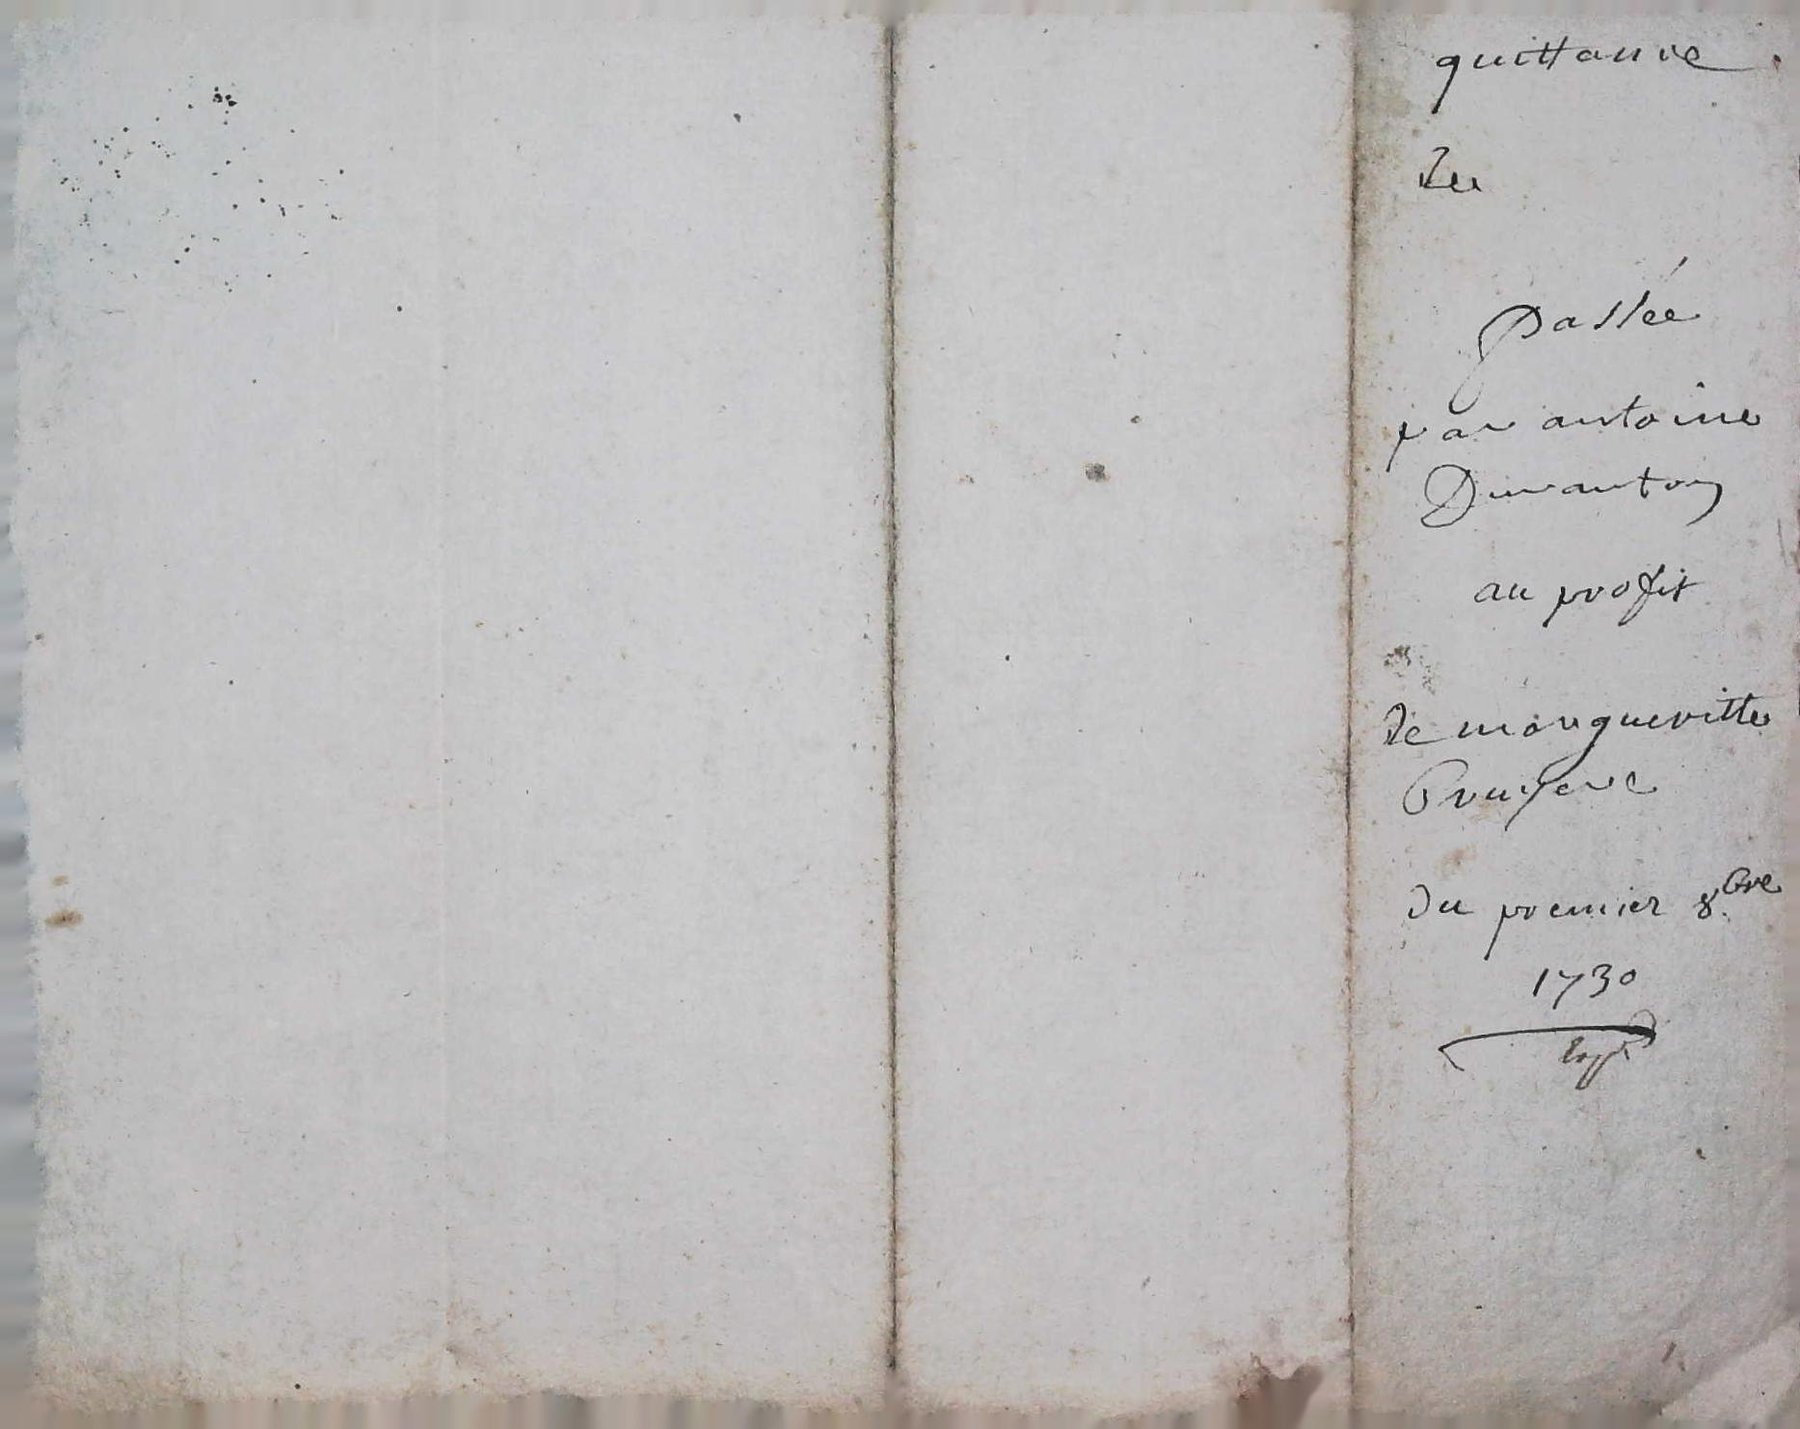 quittance
De
passée
par antoine
Duranton
au profit
De margueritte
Bruyere
Du premier 8.bre
1730